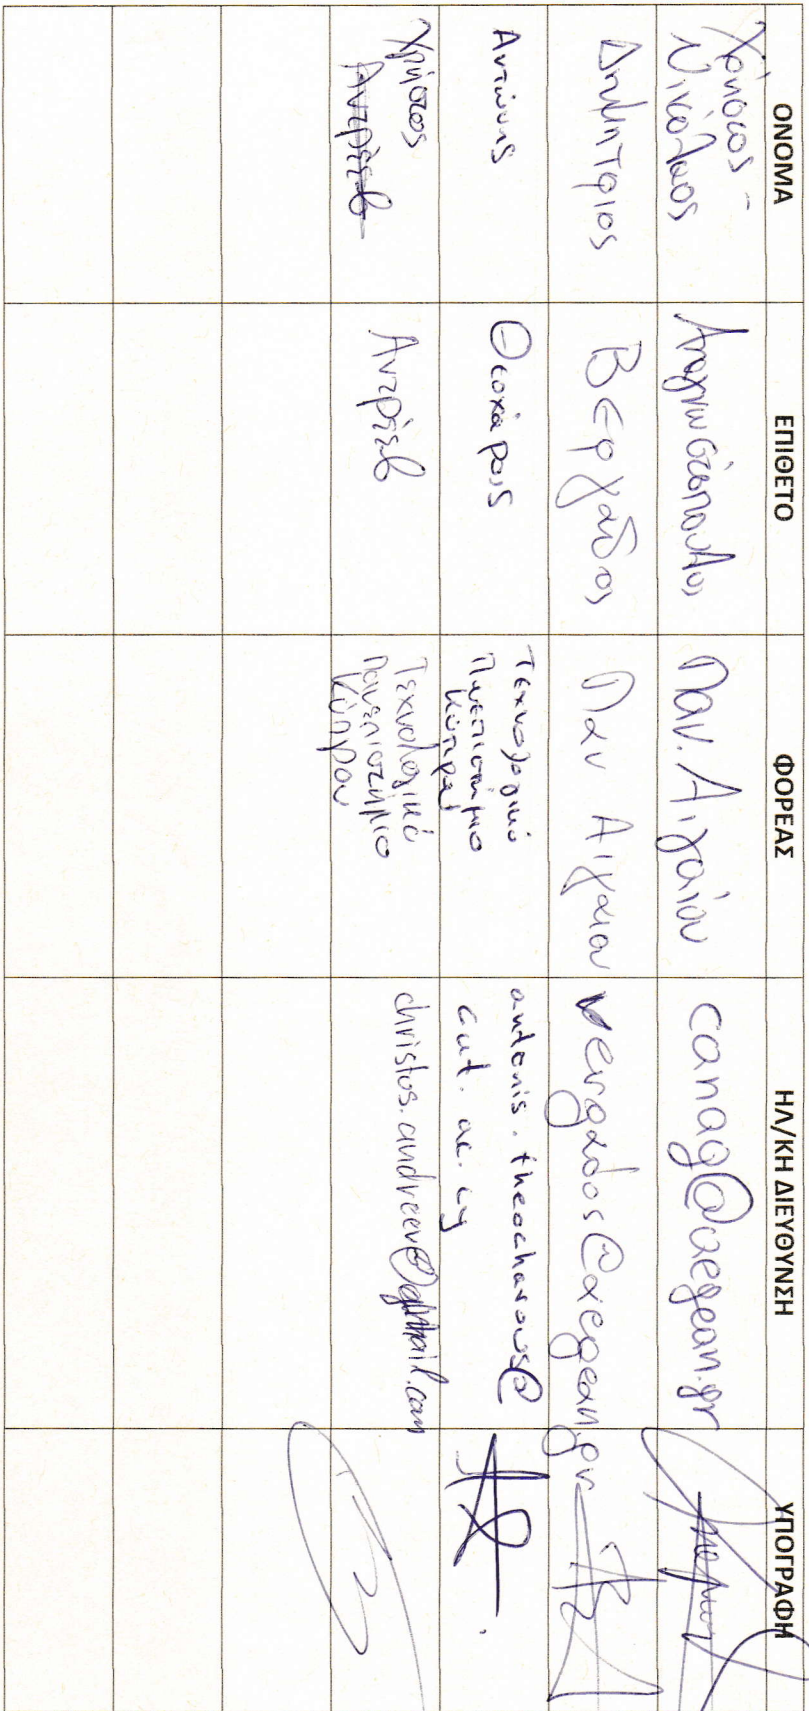 ΟΝΟΜΑ ΕΠΙΘΕΤΟ ΦΟΡΕΑΣ ΗΛ/ΚΗ ΔΙΕΥΘΥΝΣΗ ΥΠΟΓΡΑΦΗ
Χρήστος -
Νικόλαος
Αναγνωστόπουλος
Παν. Αιγαίου
canag@aegean.gr
Δημήτριος
Βεργάδος
Παν Αιγαίου
vergados@aegean.gr
Αντώνης
Θεοχάρους
Τεχνολογικό
Πανεπιστήμιο
Κύπρου
antonis.theocharous@
cut.ac.cy
Χρήστος
Αντρέεβ
Αντρέεβ
Τεχνολογικό
Πανεπιστήμιο
Κύπρου
christos.andreev@gmail.com